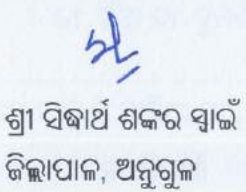 ଶ୍ରୀ ସିଦ୍ଧାର୍ଥ ଶଙ୍କର ସ୍ୱାଇଁ
ଜିଲ୍ଲାପାଳ, ଅନୁଗୁଳ